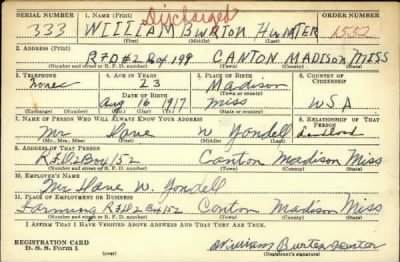 SERIAL NUMBER 1. NAME (Print) Discharged ORDER NUMBER
333 WILLIAM BURTON HUNTER 1552
(First) (Middle) (Last)
2. ADDRESS (Print)
RFD#2 Box 199 CANTON MADISON MISS
(Number and street or R. F. D. number) (Town) (County) (State)
3. TELEPHONE 4. AGE IN YEARS 5. PLACE OF BIRTH 6. COUNTRY OF CITIZENSHIP
None 23 Madison
DATE OF BIRTH (Town or county)
Aug 16 1917 Miss USA
(Exchange) (Number) (Mo.) (Day) (Yr.) (State or country)
7. NAME OF PERSON WHO WILL ALWAYS KNOW YOUR ADDRESS 8. RELATIONSHIP OF THAT PERSON
Mr Dave W Yondell Landlord
(Mr., Mrs., Miss) (First) (Middle) (Last)
9. ADDRESS OF THAT PERSON
R.F.D2 Box 152 Canton Madison Miss
(Number and street or R. F. D. number) (Town) (County) (State)
10. EMPLOYER'S NAME
Mr Dave W. Yondell
11. PLACE OF EMPLOYMENT OR BUSINESS
Farming RFD2 Box 152 Canton Madison Miss
(Number and street or R. F. D. number) (Town) (County) (State)
I AFFIRM THAT I HAVE VERIFIED ABOVE ANSWERS AND THAT THEY ARE TRUE.
REGISTRATION CARD
D. S. S. Form 1 William Burton Hunter
(over) (Registrant's signature)